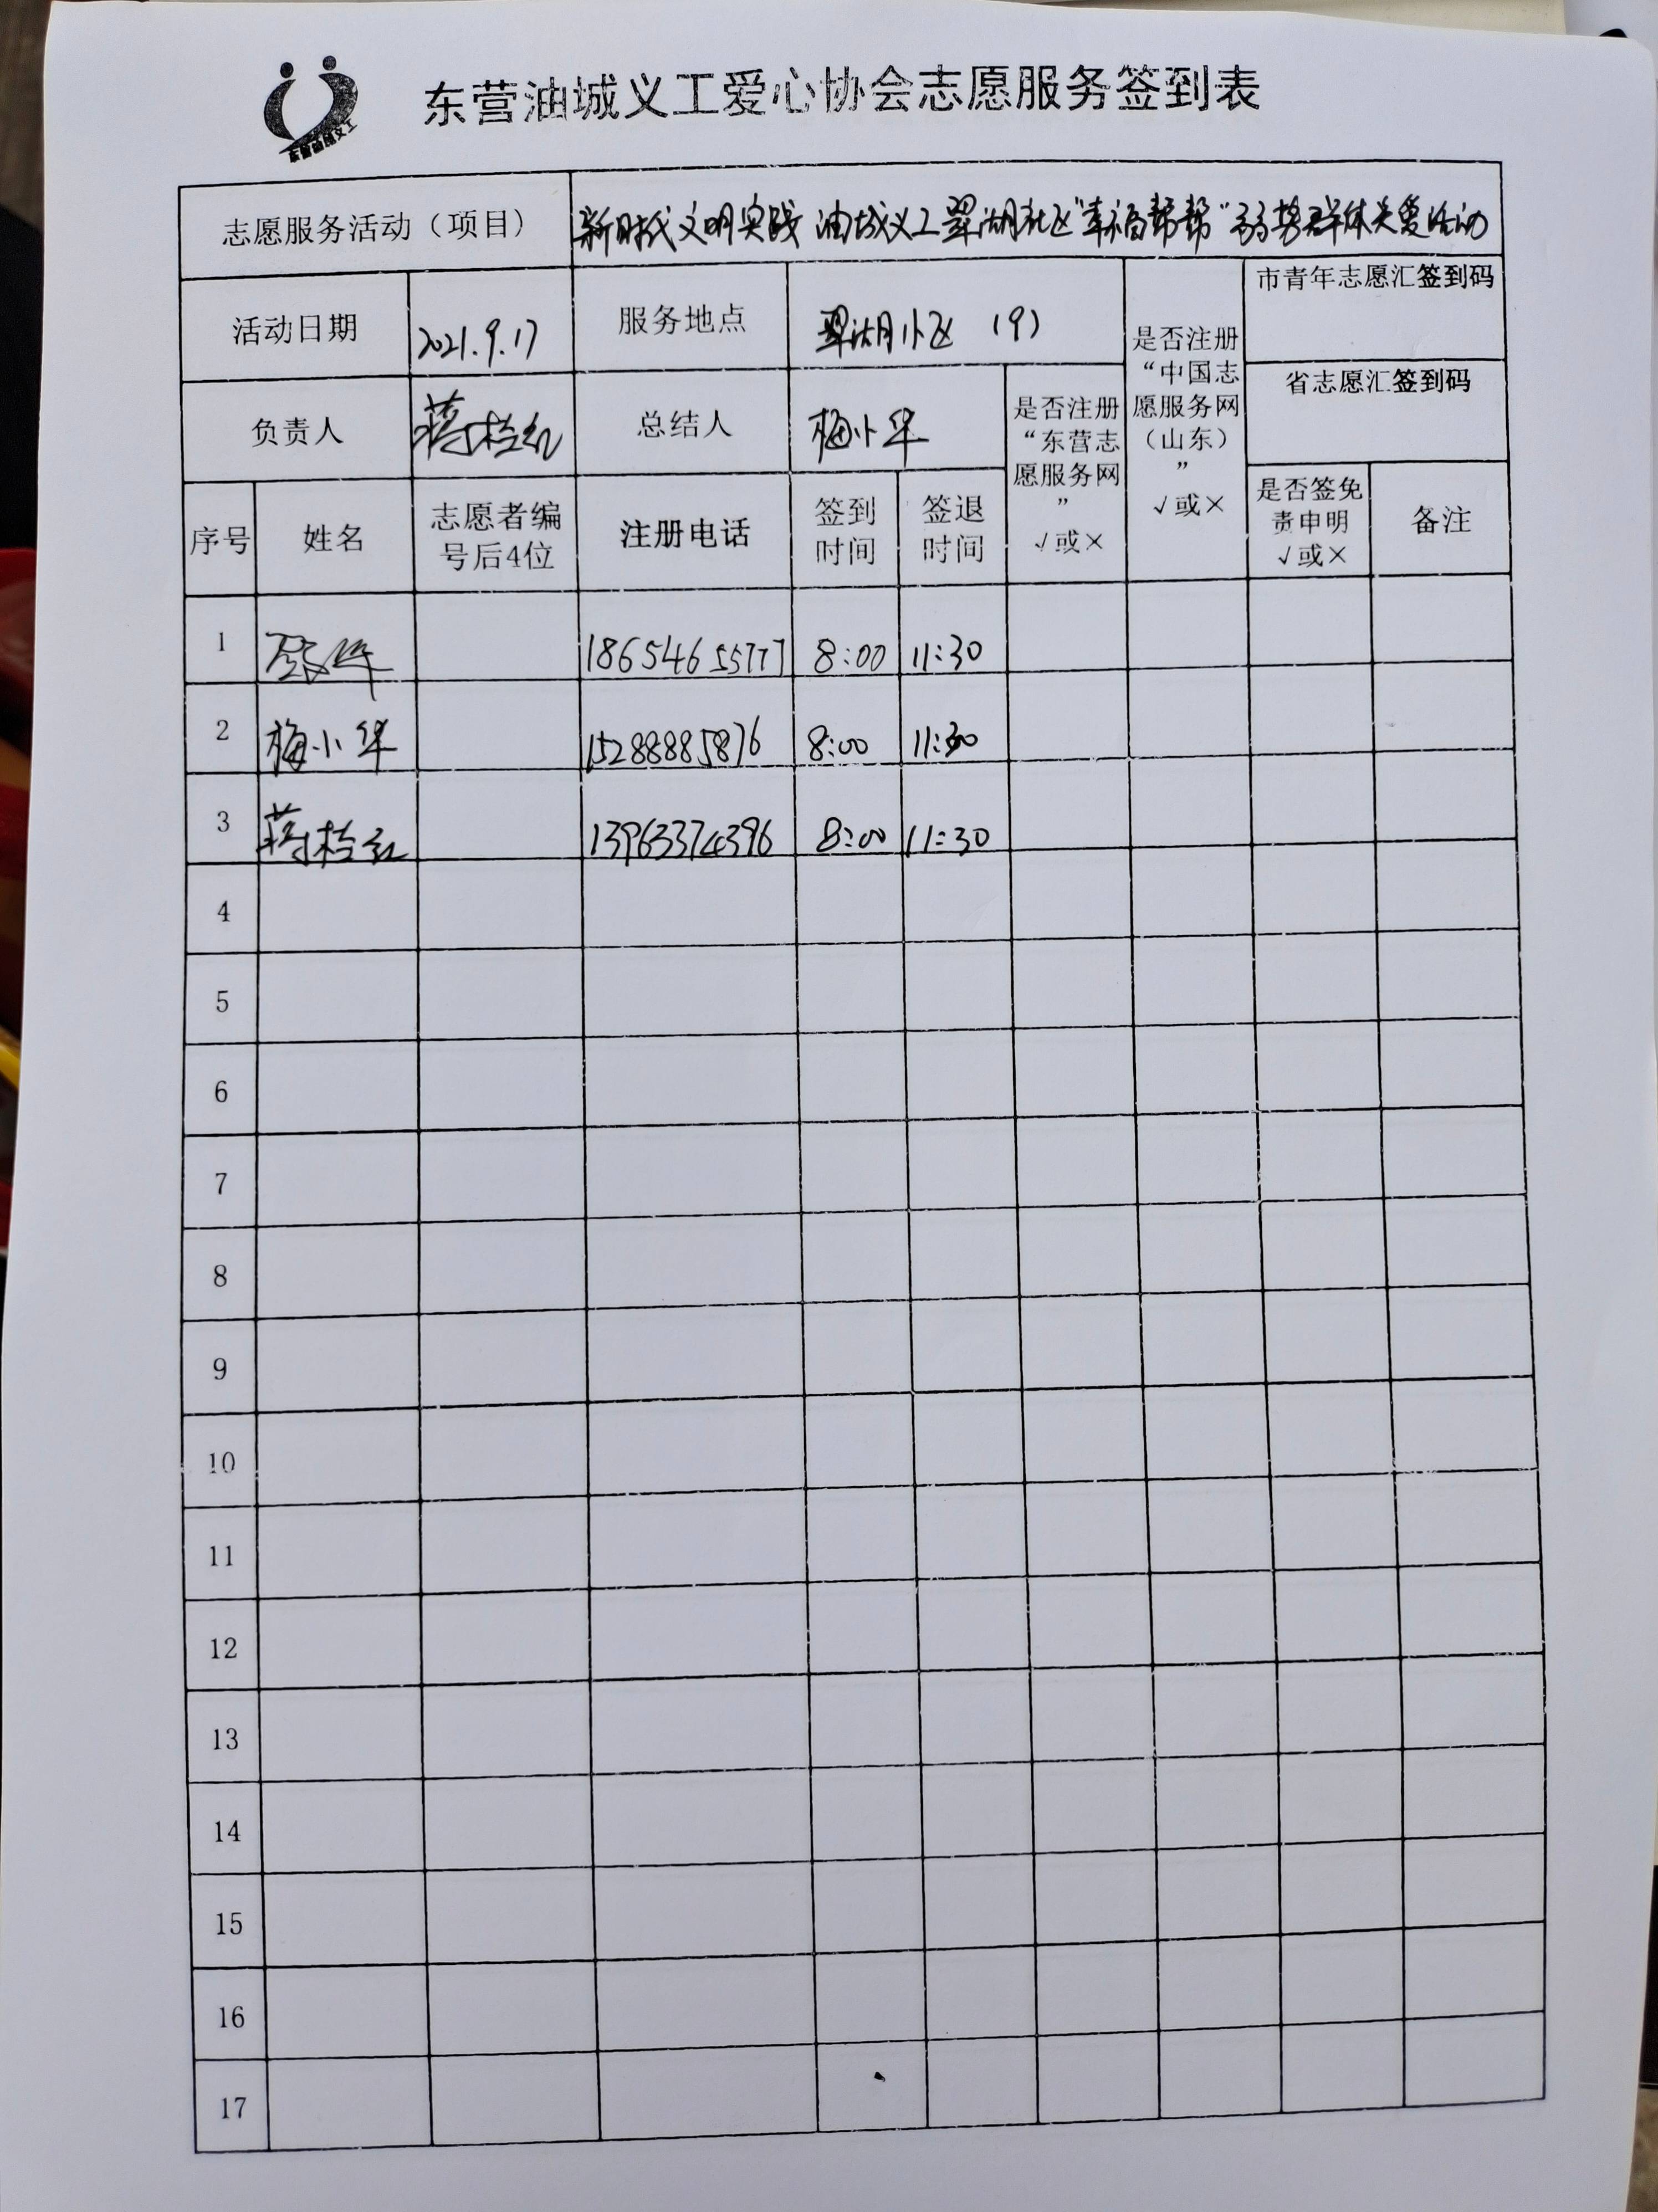 东营油城义工爱心协会志愿服务签到表
东营油城义工
志愿服务活动（项目） 新时代文明实践 油城义工翠湖社区“幸福帮帮”弱势群体关爱活动
活动日期 2021.9.17 服务地点 翠湖小区 (9)
是否注册“中国志愿服务网（山东）” √或×
市青年志愿汇签到码
省志愿汇签到码
负责人 总结人 梅小华
是否注册“东营志愿服务网” √或×
序号 姓名 志愿者编号后4位 注册电话 签到时间 签退时间 是否签免责申明 √或× 备注
1 18654655777 8:00 11:30
2 梅小华 15288885876 8:00 11:30
3 13963374396 8:00 11:30
4
5
6
7
8
9
10
11
12
13
14
15
16
17